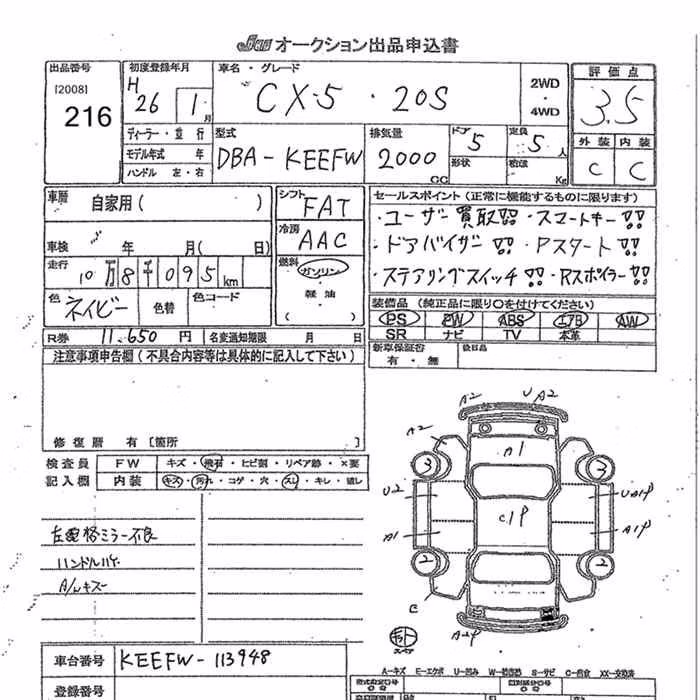 JAA オークション出品申込書
出品番号
[2008]
216
初度登録年月
H
26 1月
車名・グレード
CX-5 ・ 20S
2WD
・
4WD
評価点
3.5
外装 内装
C C
ディーラー・並行
モデル年式 年
ハンドル 左・右
型式
DBA-KEEFW
排気量
2000
CC
ドア
5
形状
定員
5人
積載
Kg
車歴
自家用( )
車検 年 月( 日)
走行
10万8千095km
色
ネイビー
色替
色コード
シフト
FAT
冷房
AAC
燃料
ガソリン
・
軽油
セールスポイント(正常に機能するものに限ります)
・ユーザー買取!!・スマートキー!!
・ドアバイザー!!・Pスタート!!
・ステアリングスイッチ!!・Rスポイラー!!
装備品(純正品に限り○を付けてください)
PS PW ABS エアB AW
SR ナビ TV 本革
R券 11,650 円 名変通知期限 月 日
新車保証書
有・無
後日品
注意事項申告欄(不具合内容等は具体的に記入して下さい)
修復歴 有〔箇所
検査員
記入欄
FW キズ・飛石・ヒビ割・リペア跡・×要
内装 キズ・汚れ・コゲ・穴・スレ・キレ・壊し
左電格ミラー不良
ハンドルハゲ
A/Wキズ
A2 U A2
A2
A1
3 3
U2 UA1P
C1P
A1 A1P
2 2
A2P
スペア
車台番号 KEEFW-113948
登録番号
A-キズ E-エクボ U-凹み W-補修跡 S-サビ C-腐食 XX-交換済